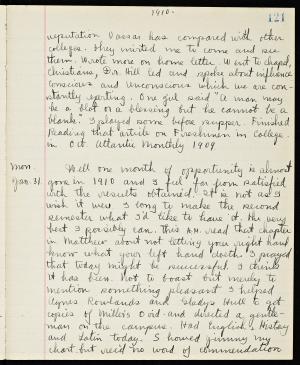 1910.
121
reputation Vassar has compared with other
colleges. They invited me to come and see
them. Wrote more on home letter. Went to chapel,
Christians, Dr. Hill led and spoke about influence
conscious and unconscious which we are con-
stantly exerting. One girl said "a man may
be a blot or a blessing but he cannot be a
blank." I played some before supper. Finished
reading that article on Freshmen in College
in Oct. Atlantic Monthly 1909
Mon.
Jan. 31
Well one month of opportunity is almost
gone in 1910 and I feel far from satisfied
with the results obtained. It is not as I
wish it were. I long to make the second
semester what I'd like to have it. The very
best I possibly can. This A.M. read that chapter
in Matthew about not letting your right hand
know what your left hand doeth. I prayed
that today might be successful. I think
it has been. Not to boast but merely to
mention something pleasant I helped
Agnes Rowlands and Gladys Hull to get
copies of Miller's Ovid and directed a gentle-
man on the campus. Had English, History
and Latin today. I showed Jimmy my
chart but rec'd no word of commendation